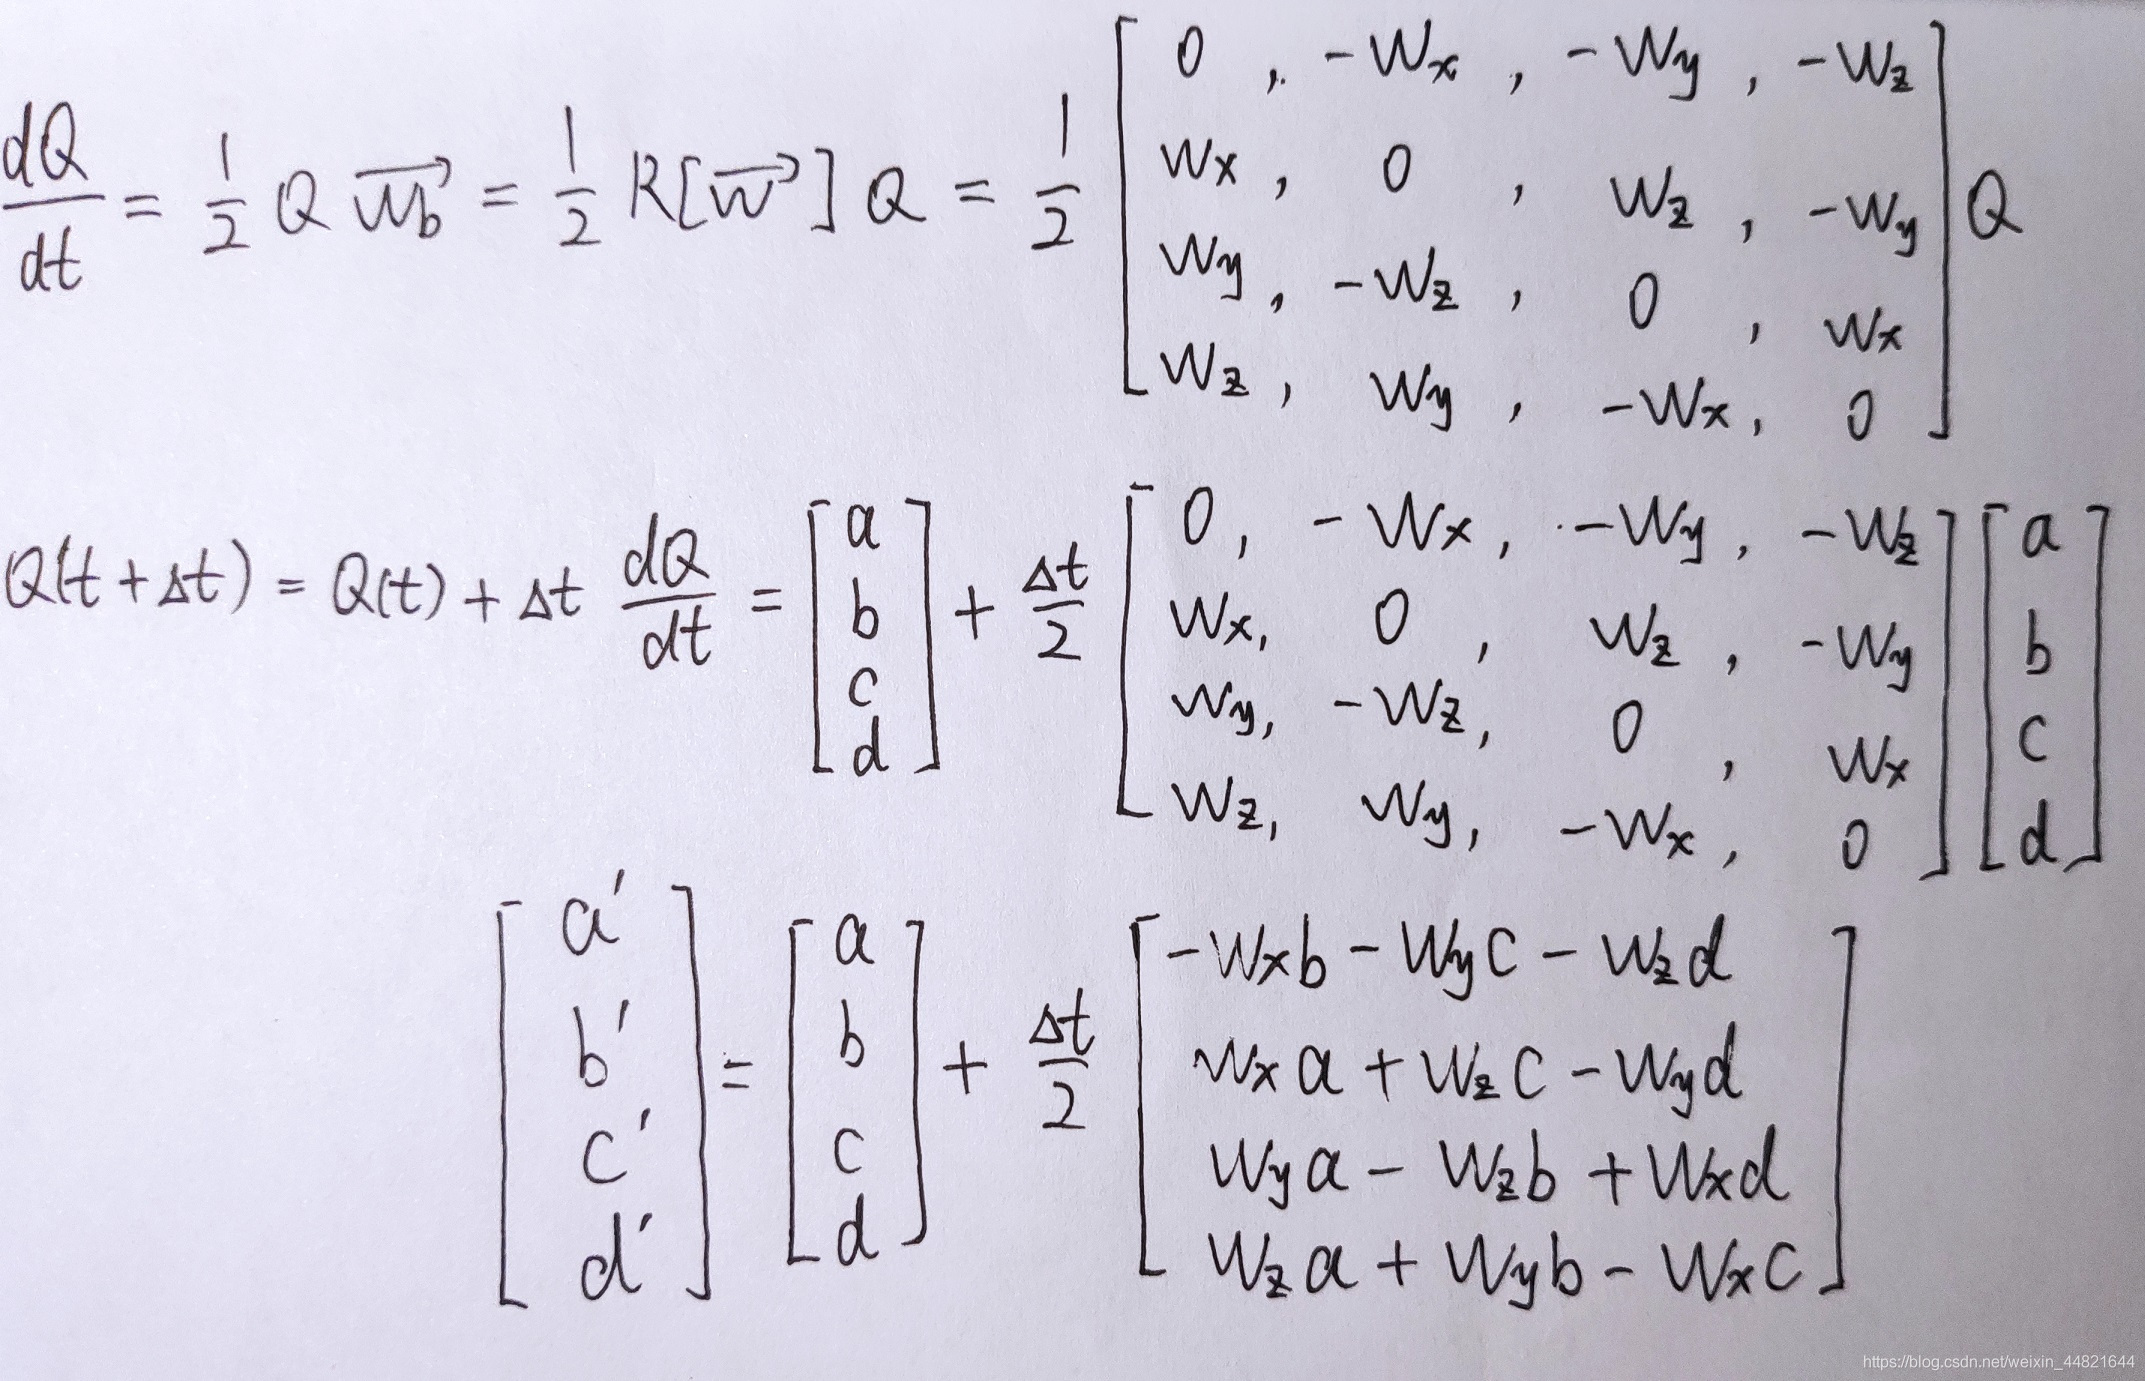 dQ/dt = 1/2 Q \vec{w_b} = 1/2 R[\vec{w}] Q = 1/2 [0, -Wx, -Wy, -Wz; Wx, 0, Wz, -Wy; Wy, -Wz, 0, Wx; Wz, Wy, -Wx, 0] Q
Q(t+Δt) = Q(t) + Δt dQ/dt = [a; b; c; d] + Δt/2 [0, -Wx, -Wy, -Wz; Wx, 0, Wz, -Wy; Wy, -Wz, 0, Wx; Wz, Wy, -Wx, 0] [a; b; c; d]
[a'; b'; c'; d'] = [a; b; c; d] + Δt/2 [-Wxb - Wyc - Wzd; Wxa + Wzc - Wyd; Wya - Wzb + Wxd; Wza + Wyb - Wxc]
https://blog.csdn.net/weixin_44821644